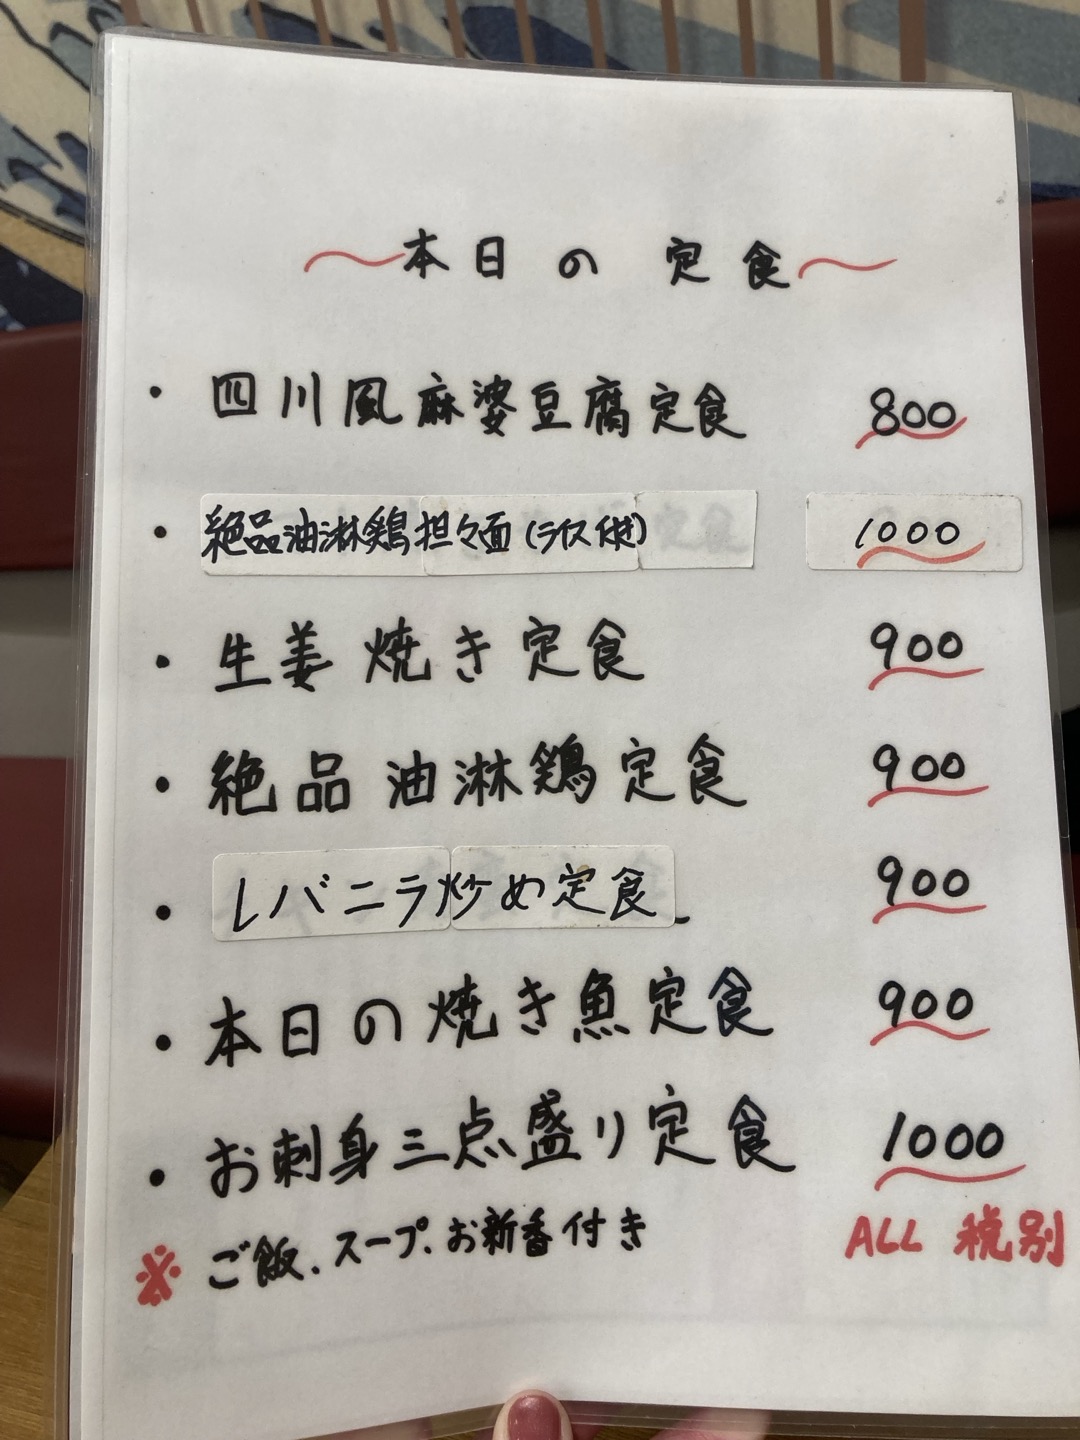 〜本日の定食〜
・四川風麻婆豆腐定食 800
・絶品油淋鶏担々面(ライス付き) 1000
・生姜焼き定食 900
・絶品油淋鶏定食 900
・レバニラ炒め定食 900
・本日の焼き魚定食 900
・お刺身三点盛り定食 1000
※ご飯、スープ、お新香付き ALL 税別